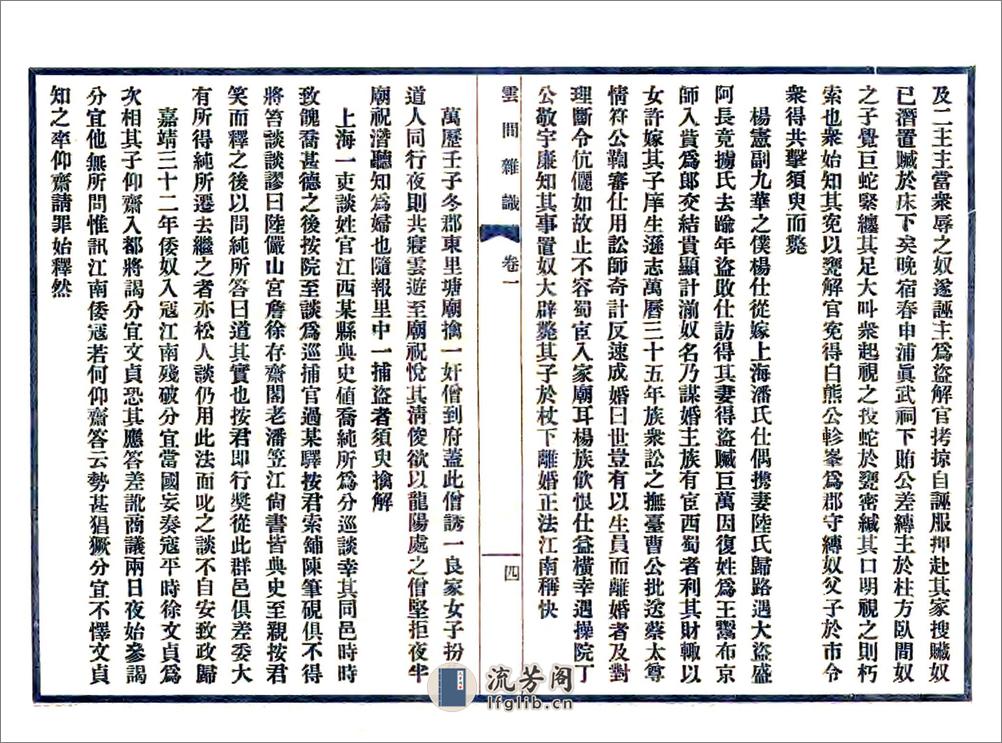 及二主主當衆辱之奴遂誣主爲盜解官拷掠自誣服押赴其家搜贓奴
已潛置贓於床下矣晚宿春申浦眞武祠下賄公差縛主於柱方臥間奴
之子覺巨蛇緊纏其足大叫衆起視之投蛇於甕密緘其口明視之則朽
索也衆始知其冤以甕解官冤得白熊公軫峯爲郡守縛奴父子於市令
衆得共擊須臾而斃
楊憲副九華之僕楊仕從嫁上海潘氏仕偶携妻陸氏歸路遇大盜盛
阿長竟擄氏去踰年盜敗仕訪得其妻得盜贓巨萬因復姓爲王鬻布京
師入貲爲郎交結貴顯計湔奴名乃謀婚主族有宦西蜀者利其財輙以
女許嫁其子庠生遜志萬曆三十五年族衆訟之撫臺曹公批送蔡太尊
情符公鞫審仕用訟師奇計反速成婚曰世豈有以生員而離婚者及對
理斷令伉儷如故止不容蜀宦入家廟耳楊族飲恨仕益橫幸遇操院丁
公敬宇廉知其事置奴大辟斃其子於杖下離婚正法江南稱快
雲間雜識 卷一 四
萬歷壬子冬郡東里塘廟擒一奸僧到府蓋此僧誘一良家女子扮
道人同行夜則共寢雲遊至廟祝悅其清俊欲以龍陽處之僧堅拒夜半
廟祝潛聽知爲婦也隨報里中一捕盜者須臾擒解
上海一吏談姓官江西某縣典史値喬純所爲分巡談幸其同邑時時
致餽喬甚德之後按院至談爲巡捕官過某驛按君索舖陳筆硯俱不得
將笞談談謬曰陸儼山宮詹徐存齋閣老潘笠江尙書皆典史至親按君
笑而釋之後以問純所答曰道其實也按君即行獎從此群邑俱差委大
有所得純所遷去繼之者亦松人談仍用此法面叱之談不自安致政歸
嘉靖三十二年倭奴入寇江南殘破分宜當國妄奏寇平時徐文貞爲
次相其子仰齋入都將謁分宜文貞恐其應答差訛商議兩日夜始參謁
分宜他無所問惟訊江南倭寇若何仰齋答云勢甚猖獗分宜不懌文貞
知之牽仰齋請罪始釋然
流芳阁
lfglib.cn